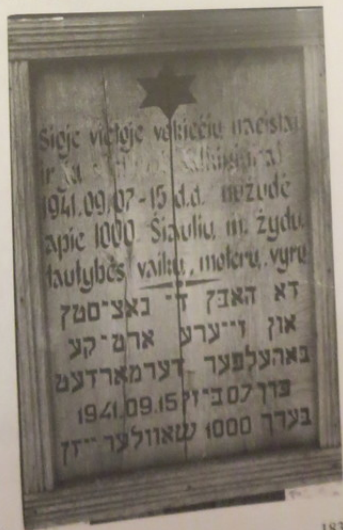 Šioje vietoje vokiečių nacistai
ir jų
1941.09.07-15 d.d. nužudė
apie 1000 Šiaulių m. žydų
tautybės vaikų, moterų, vyrų
דא האבן די נאציסטן
און זייערע ארטיקע
באהעלפער דערמארדעט
פון 07 ביזן 1941.09.15
בערך 1000 שאוולער יידן
183